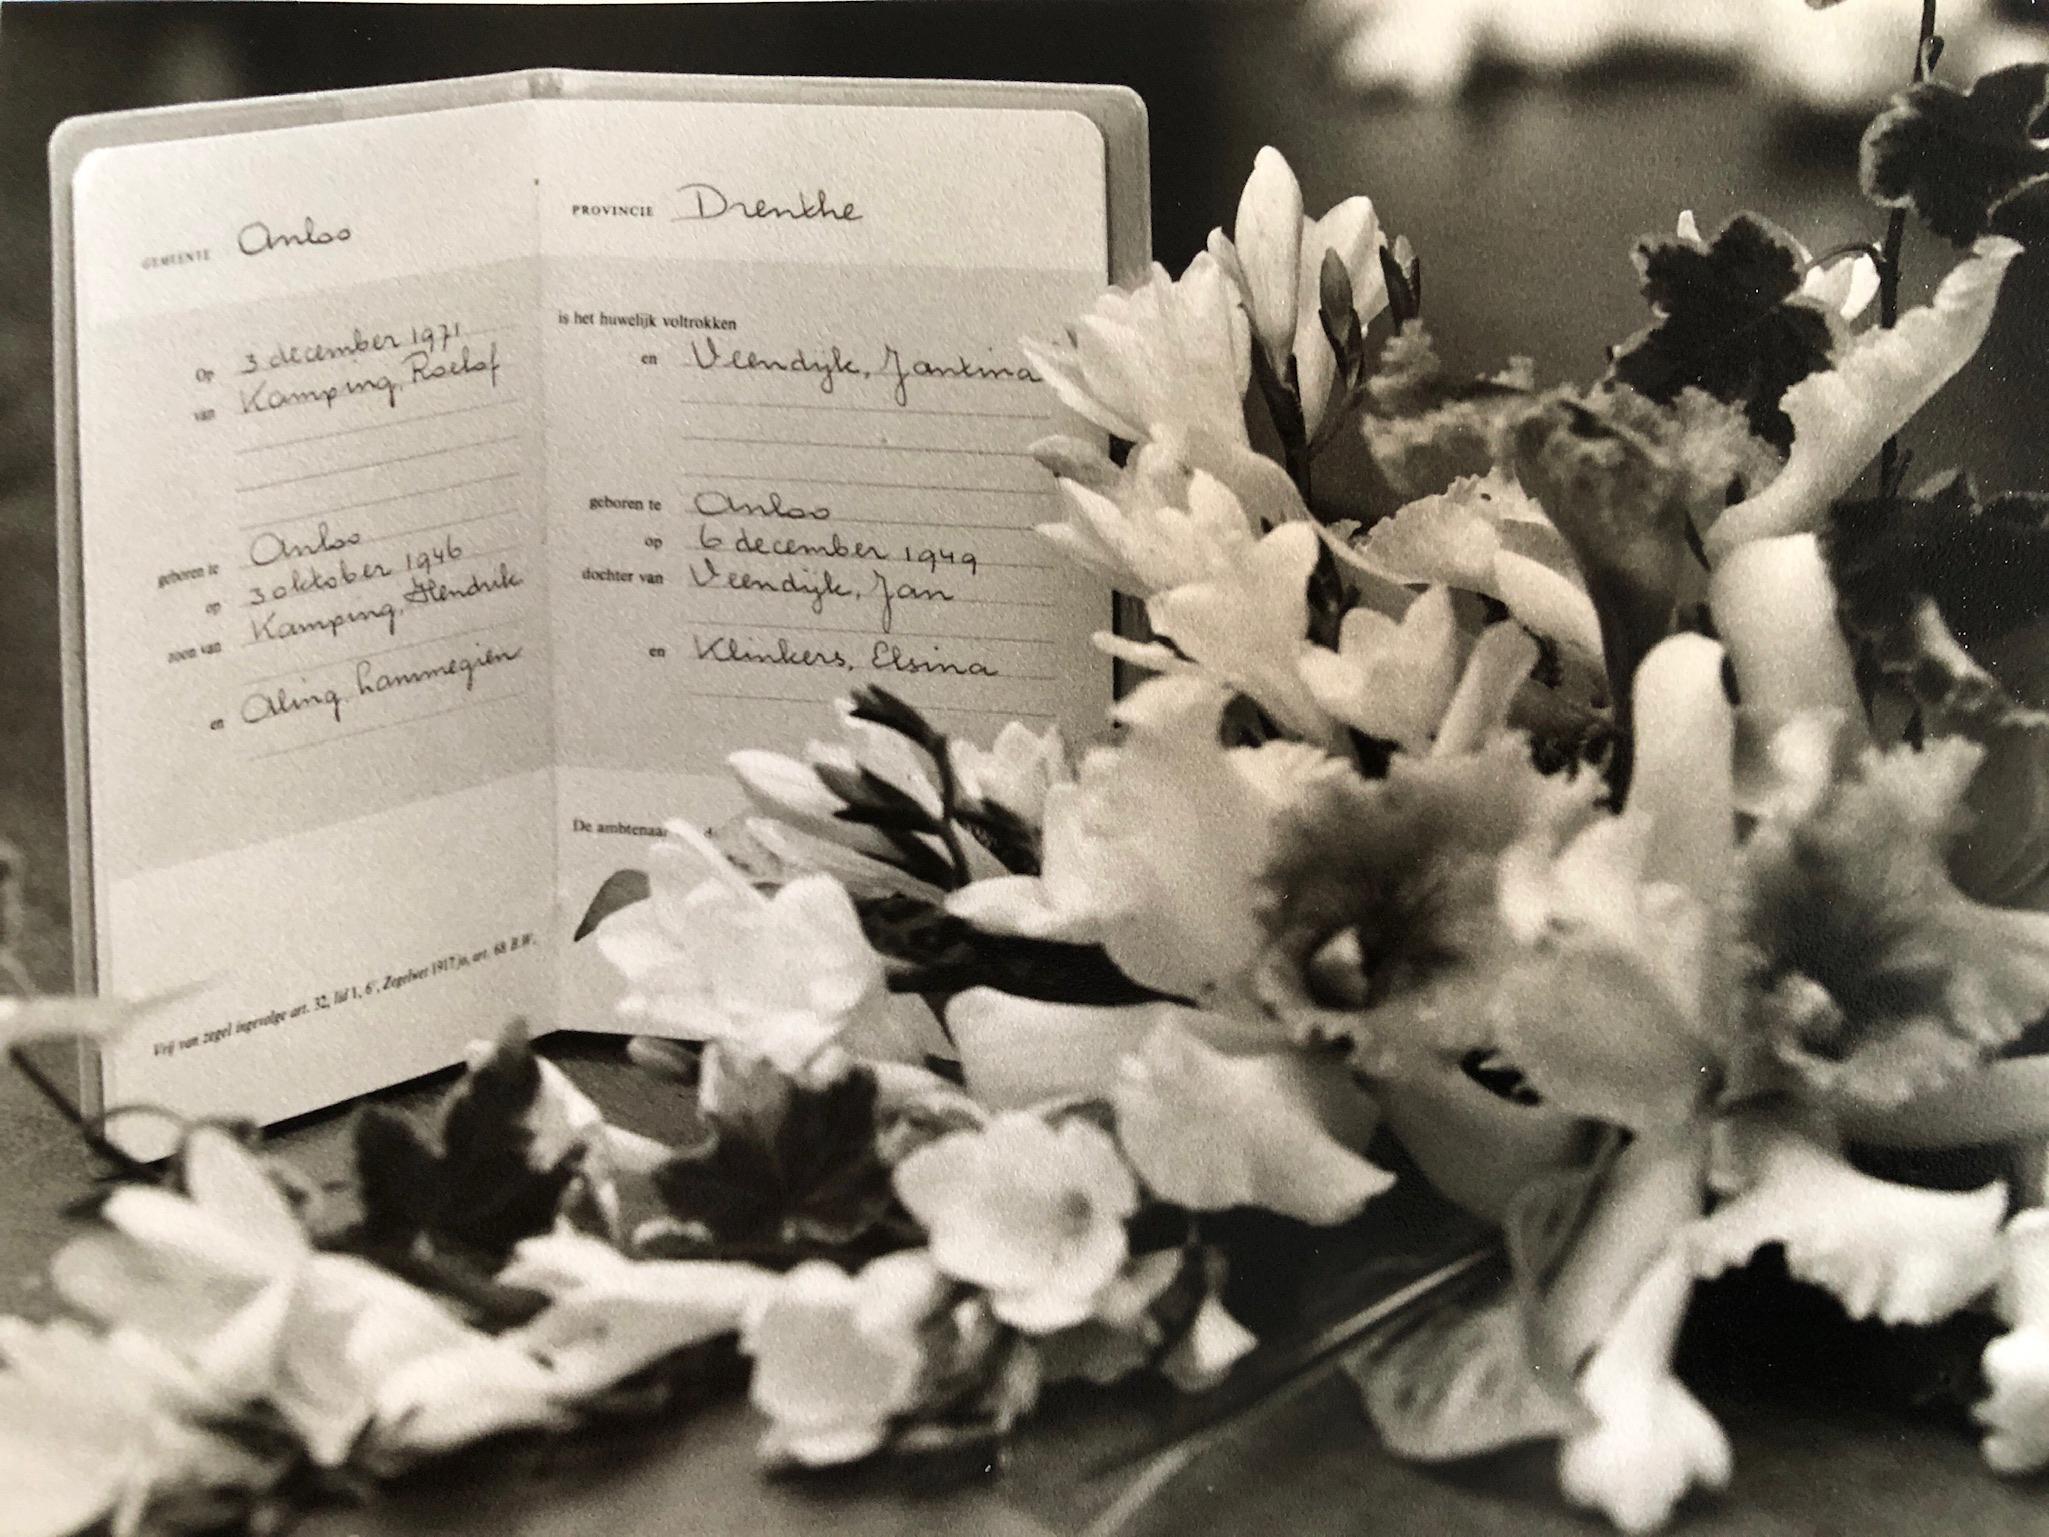 GEMEENTE Anloo
Op 3 december 1971
van Kamping, Roelof
geboren te Anloo
op 3 oktober 1946
zoon van Kamping, Hendrik
en Aling, Lammegien
Vrij van zegel ingevolge art. 32, lid 1, 6°, Zegelwet 1917 jo, art. 68 B.W.
PROVINCIE Drenthe
is het huwelijk voltrokken
en Veendijk, Jantina
geboren te Anloo
op 6 december 1949
dochter van Veendijk, Jan
en Klinkers, Elsina
De ambtenaar